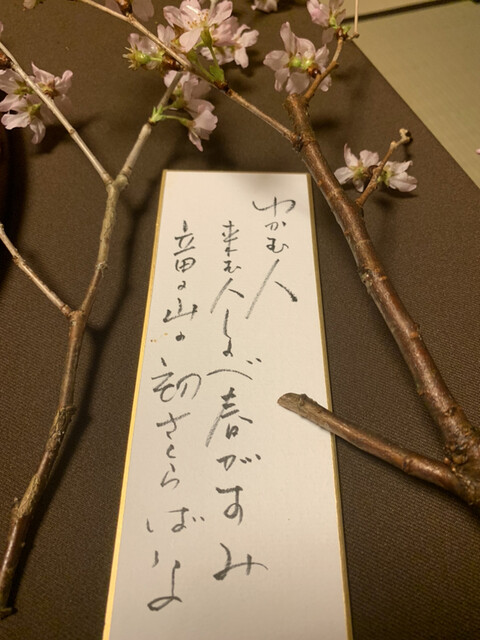 ゆかむ人
来む人しのべ春がすみ
立田の山の初さくらばな